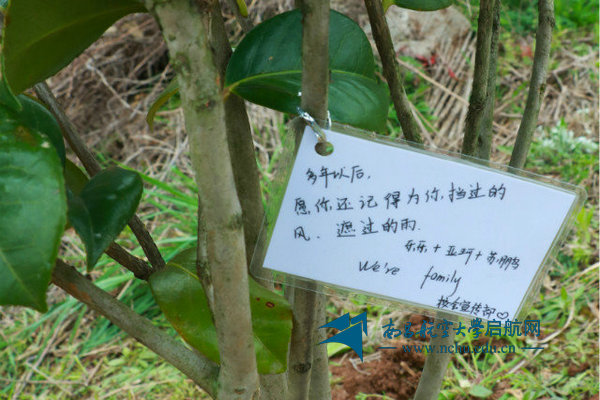 多年以后,
愿你还记得为你,挡过的
风、遮过的雨.
乐乐 + 亚珂 + 苏鹏鸟
We're family
校会宣传部♡
南昌航空大学启航网
www.nchu.edu.cn